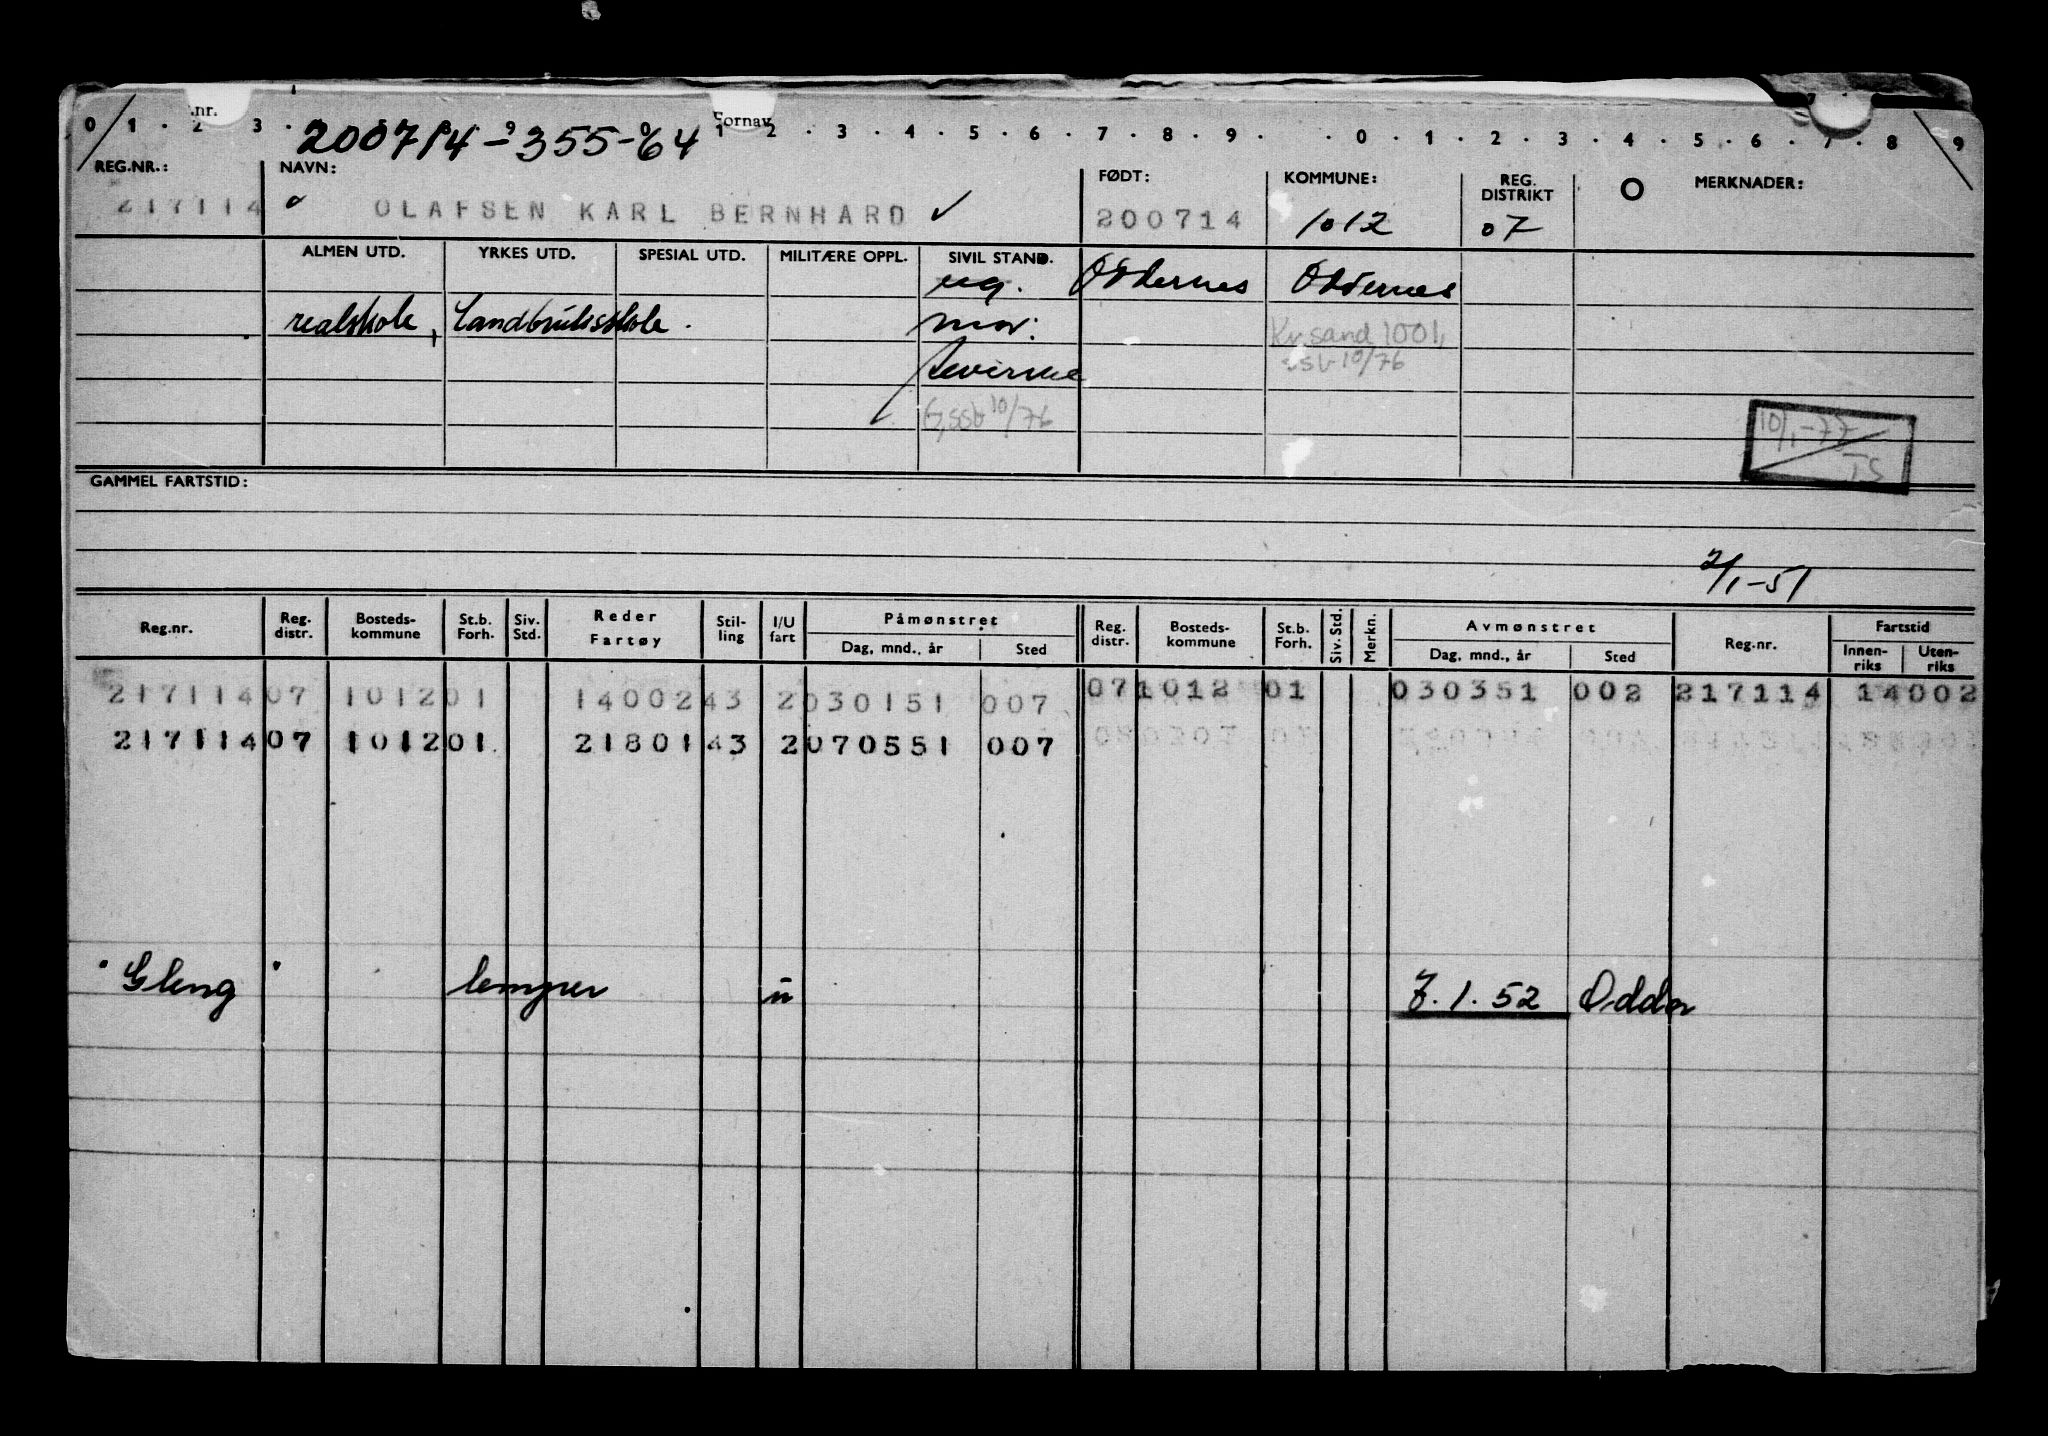 .nr. Fornav
0 1 . 2 . 3 . 9 0 1 2 . 3 . 4 . 5 . 6 . 7 . 8 . 9 . . 0 . 1 . 2 . 3 . 4 . 5 . 6 . 7 . 8 9
200714-355-64
REG.NR.: NAVN: FØDT: KOMMUNE: REG. DISTRIKT MERKNADER:
217114 OLAFSEN KARL BERNHARD ✓ 200714 1012 07
ALMEN UTD. YRKES UTD. SPESIAL UTD. MILITÆRE OPPL. SIVIL STAND.
ug. Oddernes Oddernes
realskole, Landbruksskole. mor: Kr.sand 1001,
ssb 10/76
G, ssb 10/76
10/1-77
TS
GAMMEL FARTSTID:
2/1-51
Reg.nr. Reg. distr. Bosteds-kommune St.b. Forh. Siv. Std. Reder Fartøy Stil-ling I/U fart Påmønstret Dag, mnd., år Sted Reg. distr. Bosteds-kommune St.b. Forh. Siv. Std. Merkn. Avmønstret Dag, mnd., år Sted Reg.nr. Fartstid Innen-riks Uten-riks
217114 07 1012 01 14002 43 2 030151 007 07 1012 01 030351 002 217114 14002
217114 07 1012 01 21801 43 2 070551 007
"Gleng" lemper u 7.1.52 Odda